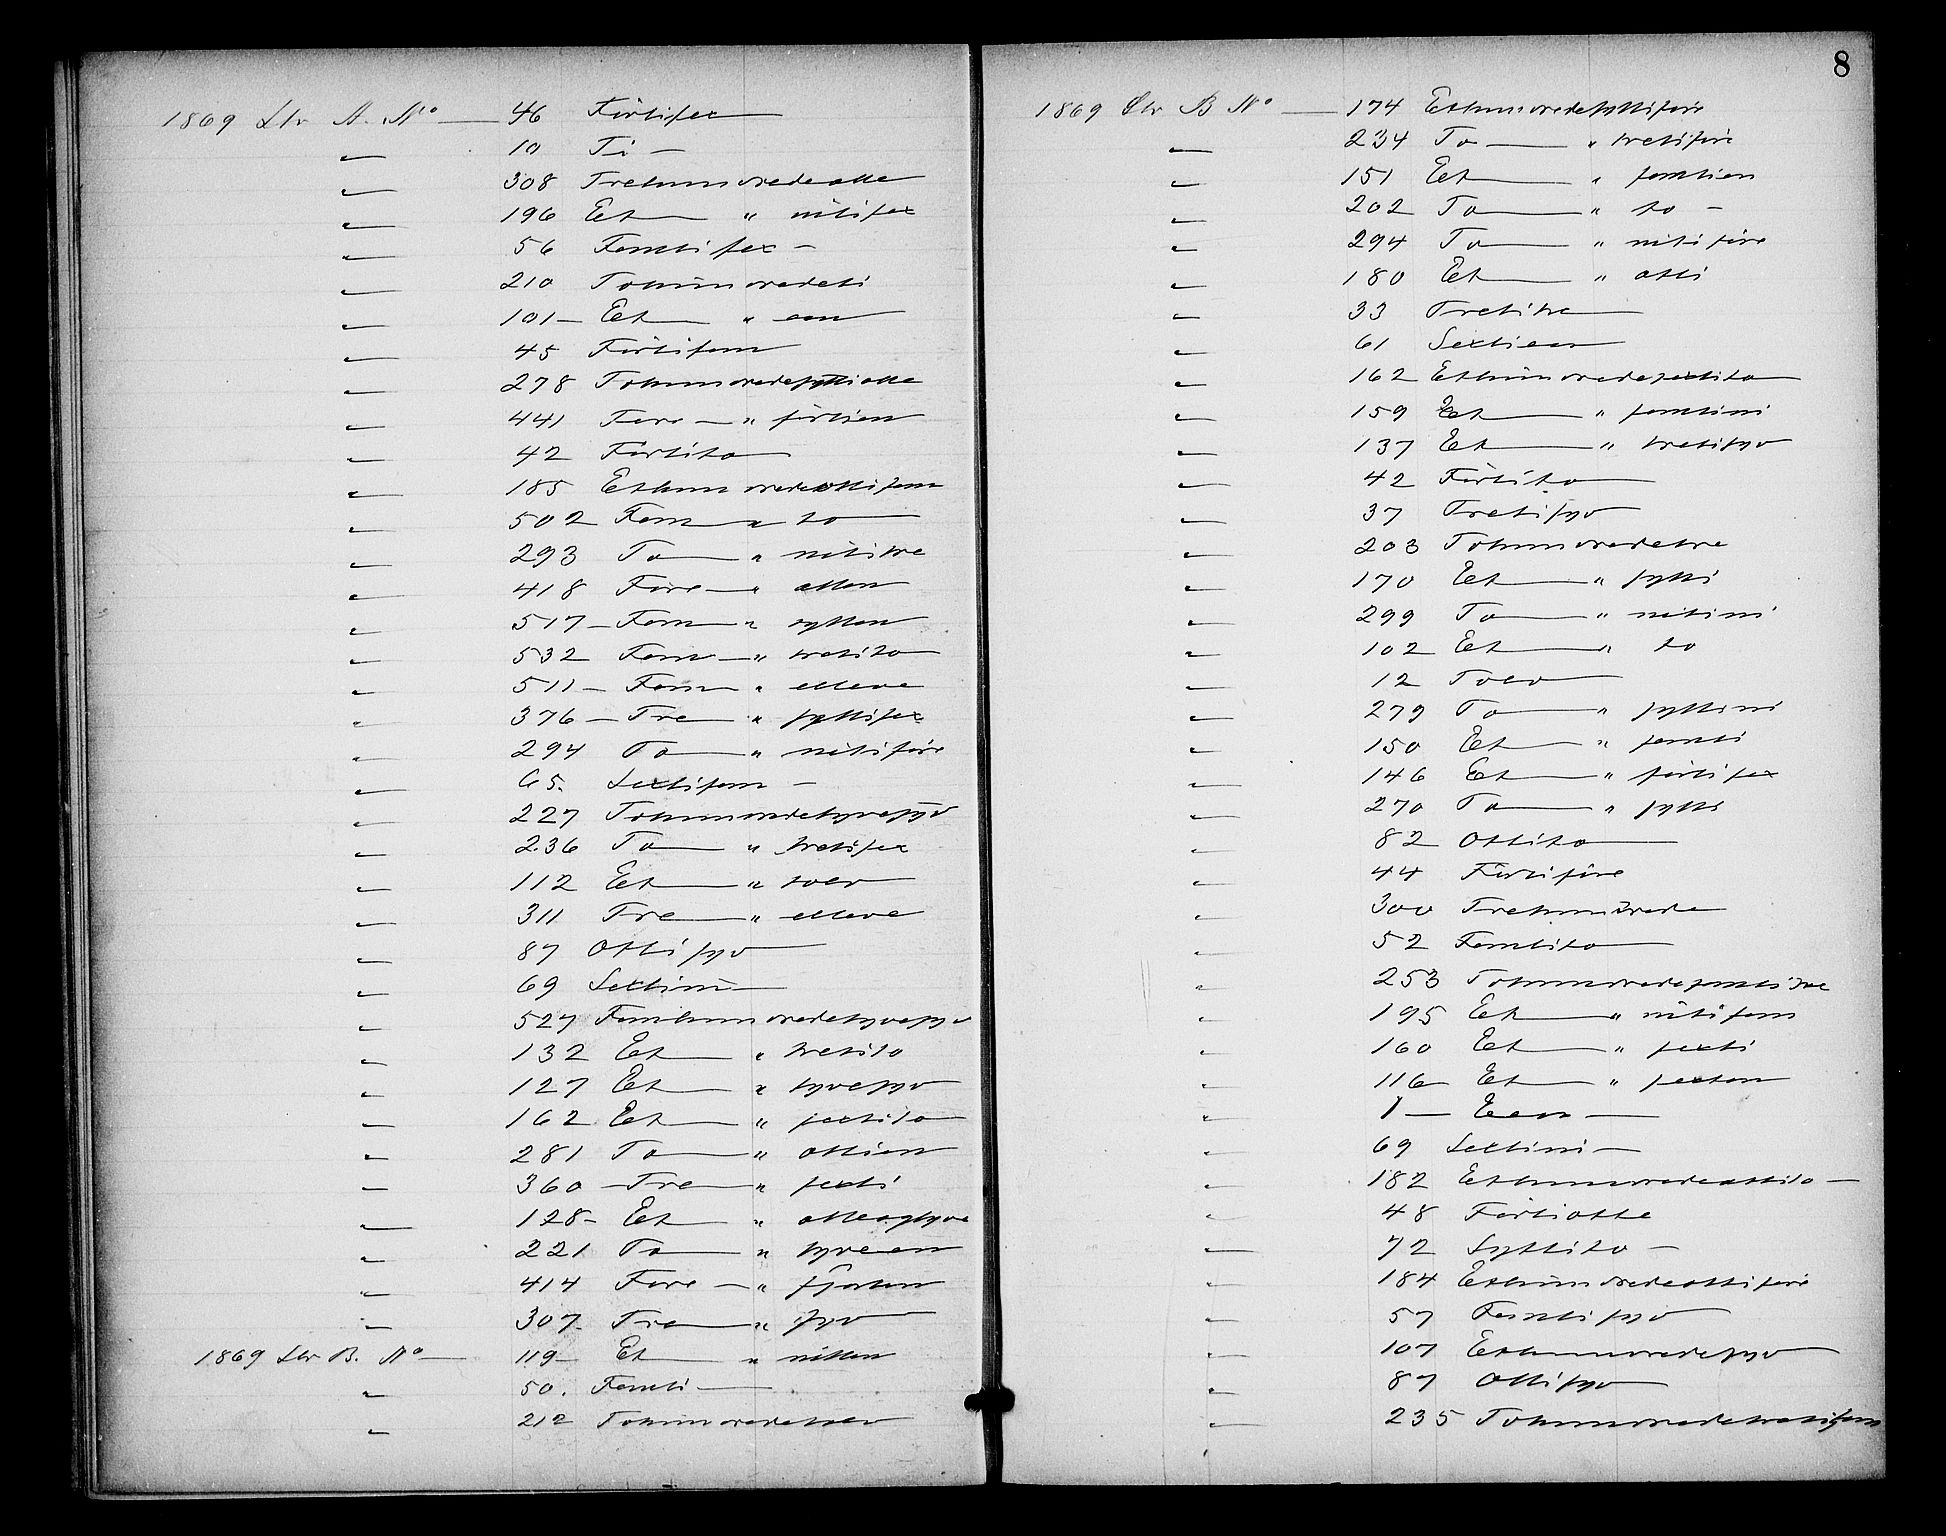 1869 Ltr A. No — 46 Förtisex —
" 10 Ti —
" 308 Trehundredeotte
" 196 Et — " nittisex
" 56 Femtisex —
" 210 Tohundredeti
" 101 — Et — " een
" 45 Förtifem
" 278 Tohundredesyttiotte
" 441 Fire — " förtien
" 42 Förtito —
" 185 Ethundredeottifem
" 502 Fem — " to —
" 293 To — " nittitre
" 418 Fire — " atten
" 517 — Fem — " sytten
" 532 Fem — " tretito
" 511 — Fem — " elleve
" 376 — Tre — " syttisex
" 294 To — " nittifire
" 65. Sextifem —
" 227 Tohundredetyvesyv
" 236 To — " tretisex
" 112 Et — " tolv
" 311 Tre — " elleve
" 87 Ottisyv —
" 69 Sextini —
" 527 Femhundredetyvesyv
" 132 Et — " tretito
" 127 Et — " tyvesyv
" 162 Et — " sextito
" 281 To — " ottien
" 360 — Tre — " sexti
" 128 - Et — " otteogtyve
" 221 To — " tyveen
" 414 Fire — " fjorten
" 307 Tre — " syv
1869 Ltr B. No — 119 — Et — " nitten
" 50. Femti —
" 212 Tohundredetolv
8
1869 Ltr B No — 174 Ethundredesyttifire
" 234 To — " tretifire
" 151 Et — " femtien
" 202 To — " to —
" 294 To — " nittifire
" 180 Et — " otti
" 33 Tretitre —
" 61 Sextieen
" 162 Ethundredesextito
" 159 Et — " femtini
" 137 Et — " tretisyv
" 42 Förtito —
" 37 Tretisyv
" 203 Tohundredetre
" 170 Et — " sytti
" 299 To — " nittini
" 102 Et — " to
" 12 Tolv —
" 279 To — " syttini
" 150 Et — " femti
" 146 Et — " förtisex
" 270 To — " sytti
" 82 Ottito —
" 44 Förtifire
" 300 Trehundrede
" 52 Femtito —
" 253 Tohundredefemtitre
" 195 Et — " nittifem
" 160 Et — " sexti
" 116 Et — " sexten
" 1 — Een —
" 69 Sextini —
" 182 Ethundredeottito —
" 48 Förtiotte
" 72 Syttito —
" 184 Ethundredeottifire
" 57 Femtisyv
" 107 Ethundredesyv
" 87 Ottisyv
" 235 Tohundredetretifem